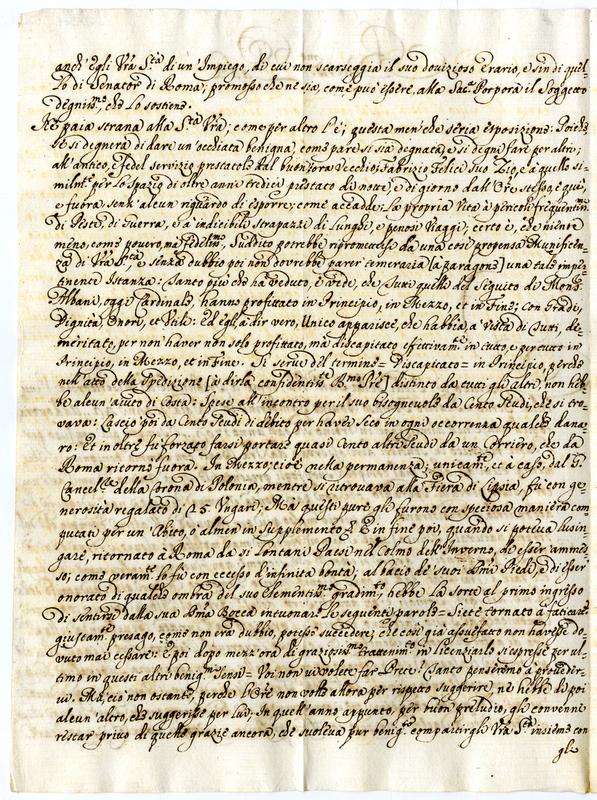 anch'egli Vrã S.tà di un'Impiego, di cui non scarseggia il suo dovizioso Erario, e sin di quel-
lo di Senator di Roma, promosso che ne sia, come può essere, alla Sac.a Porpora il Soggetto
degniss.mo, che lo sostiene.
Nè paia strana alla S.tà Vrã, come per altro l'è, questa men che seria esposizione: Poiche
se si degnerà di dare un'occhiata benigna, come pare si sia degnata, e si degni fare per altri,
all'antico, e fedel servizio prestatole dal buon' Vecchio Fabrizio Felici suo Zio, e a quello si-
milm.te per lo spazio di oltre anni tredici prestato di nove, e di giorno dall'Ore stesso e qui,
e fuora senz'alcun riguardo di esporre, come accadde, la propria Vita à pericoli frequentiss.mi
di Peste, di Guerra, e à indicibili strapazzi di lunghi, e penosi Viaggi; certo è, che niente
meno, come povero, mà fedeliss.mo Suddito potrebbe ripromettersi da una così propensa Munificen-
za di Vrã S.tà, e senza dubbio poi non dovrebbe parer temeraria [a paragone] una tale imper-
tinente Istanza: Tanto più che hà veduto, e vede, che Tutti quelli del Seguito di Mons.r
Albani, oggi Cardinale, hanno profittato in Principio, in Mezzo, et in Fine, con Gradi,
Dignità, Onori, et Utili: Ed egli, à dir vero, Unico apparisce, che habbia, à Vista di Tutti, de-
meritato, per non haver non solo profittato, mà discapitato effettivam.te in tutto, e per tutto in
Principio, in Mezzo, et in Fine. Si serve del termine = Discapitato = in Principio, perche
nell'atto della Spedizione [à dirla confidentem.te B.mo Pre] distinto da tutti gli altri, non heb-
be alcun'aiuto di Costa: Spese all'incontro per il suo bisognevole da Cento Scudi, che si tro-
vava: Lasciò poi da Cento Scudi di debito per haver seco in ogni occorrenza qualche dana-
ro: Et in oltre fù forzato farsi portare quasi Cento altri Scudi da un Corriero, che da
Roma ricornò fuora. In Mezzo, cioè nella permanenza, unicam.te, et à caso, dal G.
Cancell.re della Corona di Polonia, mentre si ritrovava alla Fiera di Lipsia, fù con ge-
nerosità regalato di 25 Ungari; Mà questi pure gli furono con speciosa maniera com-
putati per un'Abito, ò almen in supplemento. E in fine poi, quando si poteva lusin-
gare, ritornato à Roma da sì lontani Paesi nel Colmo dell'Inverno, di esser ammes-
so, come veram.te lo fù con eccesso d'infinita bontà, al bacio de' suoi S.mi Piedi, e di esser
onorato di qualche ombra del suo clementiss.mo gradim.to, hebbe la sorte al primo ingresso
di sentirsi dalla sua S.ma Bocca intuonare le seguenti parole = Siete tornato à faticare
giustam.te presago, come non era dubbio, potesse succedere, che così già assuefatto non havesse do-
vuto mai cessare: E poi dopo mezz'ora di graziosiss.mo trattenim.to in licenziarlo si espresse per ul-
timo in questi altri benign.mi sensi = Voi non vi volete far Prete? Tanto penseremo à proveder-
vi. Mà, ciò non ostante, perche l'Ore non volle allora per rispetto suggerire, nè hebbe di poi
alcun'altro, che suggerisse per lui; In quell'anno appunto, per buon preludio, gli convenne
restar privo di quelle grazie ancora, che soleva pur benig.te compartirgli Vrã S.tà insieme con
gli